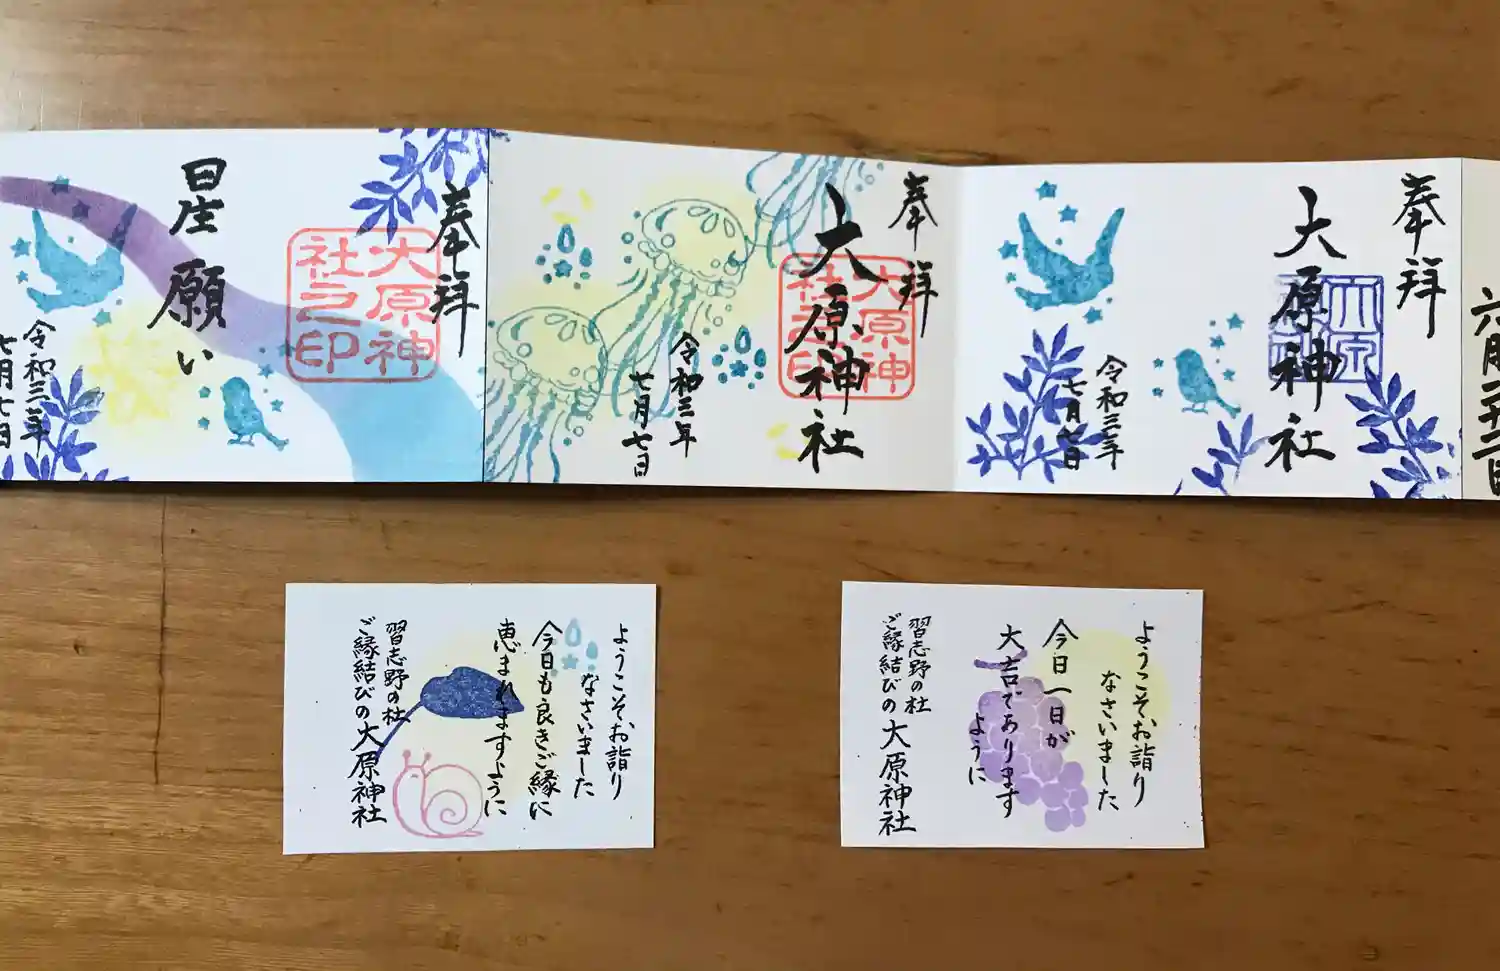 六月二十二日
奉拝
大原神社
令和三年
七月七日
奉拝
大原神社
大原神
社之印
令和三年
七月七日
奉拝
大原神
社之印
星願い
令和三年
七月七日
ようこそお詣り
なさいました
今日も良きご縁に
恵まれますように
習志野の杜
ご縁結びの大原神社
ようこそお詣り
なさいました
今日一日が
大吉であります
ように
習志野の杜
ご縁結びの大原神社